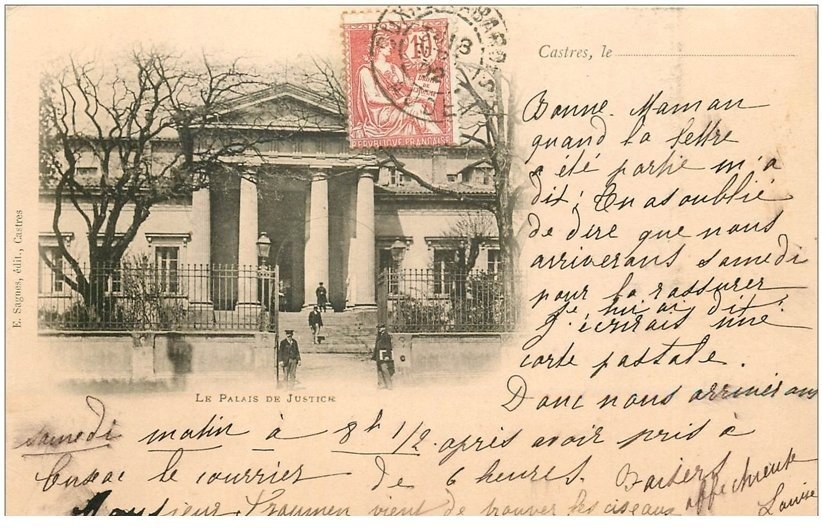 Castres, le
10
RÉPUBLIQUE FRANÇAISE
Bonne-Maman
quand la lettre
a été partie m'a
dit: Tu as oublié
de dire que nous
arriverons samedi
pour la rassurer
je lui ai dit:
J'écrirais une
carte postale.
Donc nous arriverons
samedi matin à 8h 1/2 après avoir pris à
le courrier de 6 heures. Baisers
affectueux
Louise
Monsieur vient de trouver les ciseaux
LE PALAIS DE JUSTICE
E. Sagnes, édit., Castres